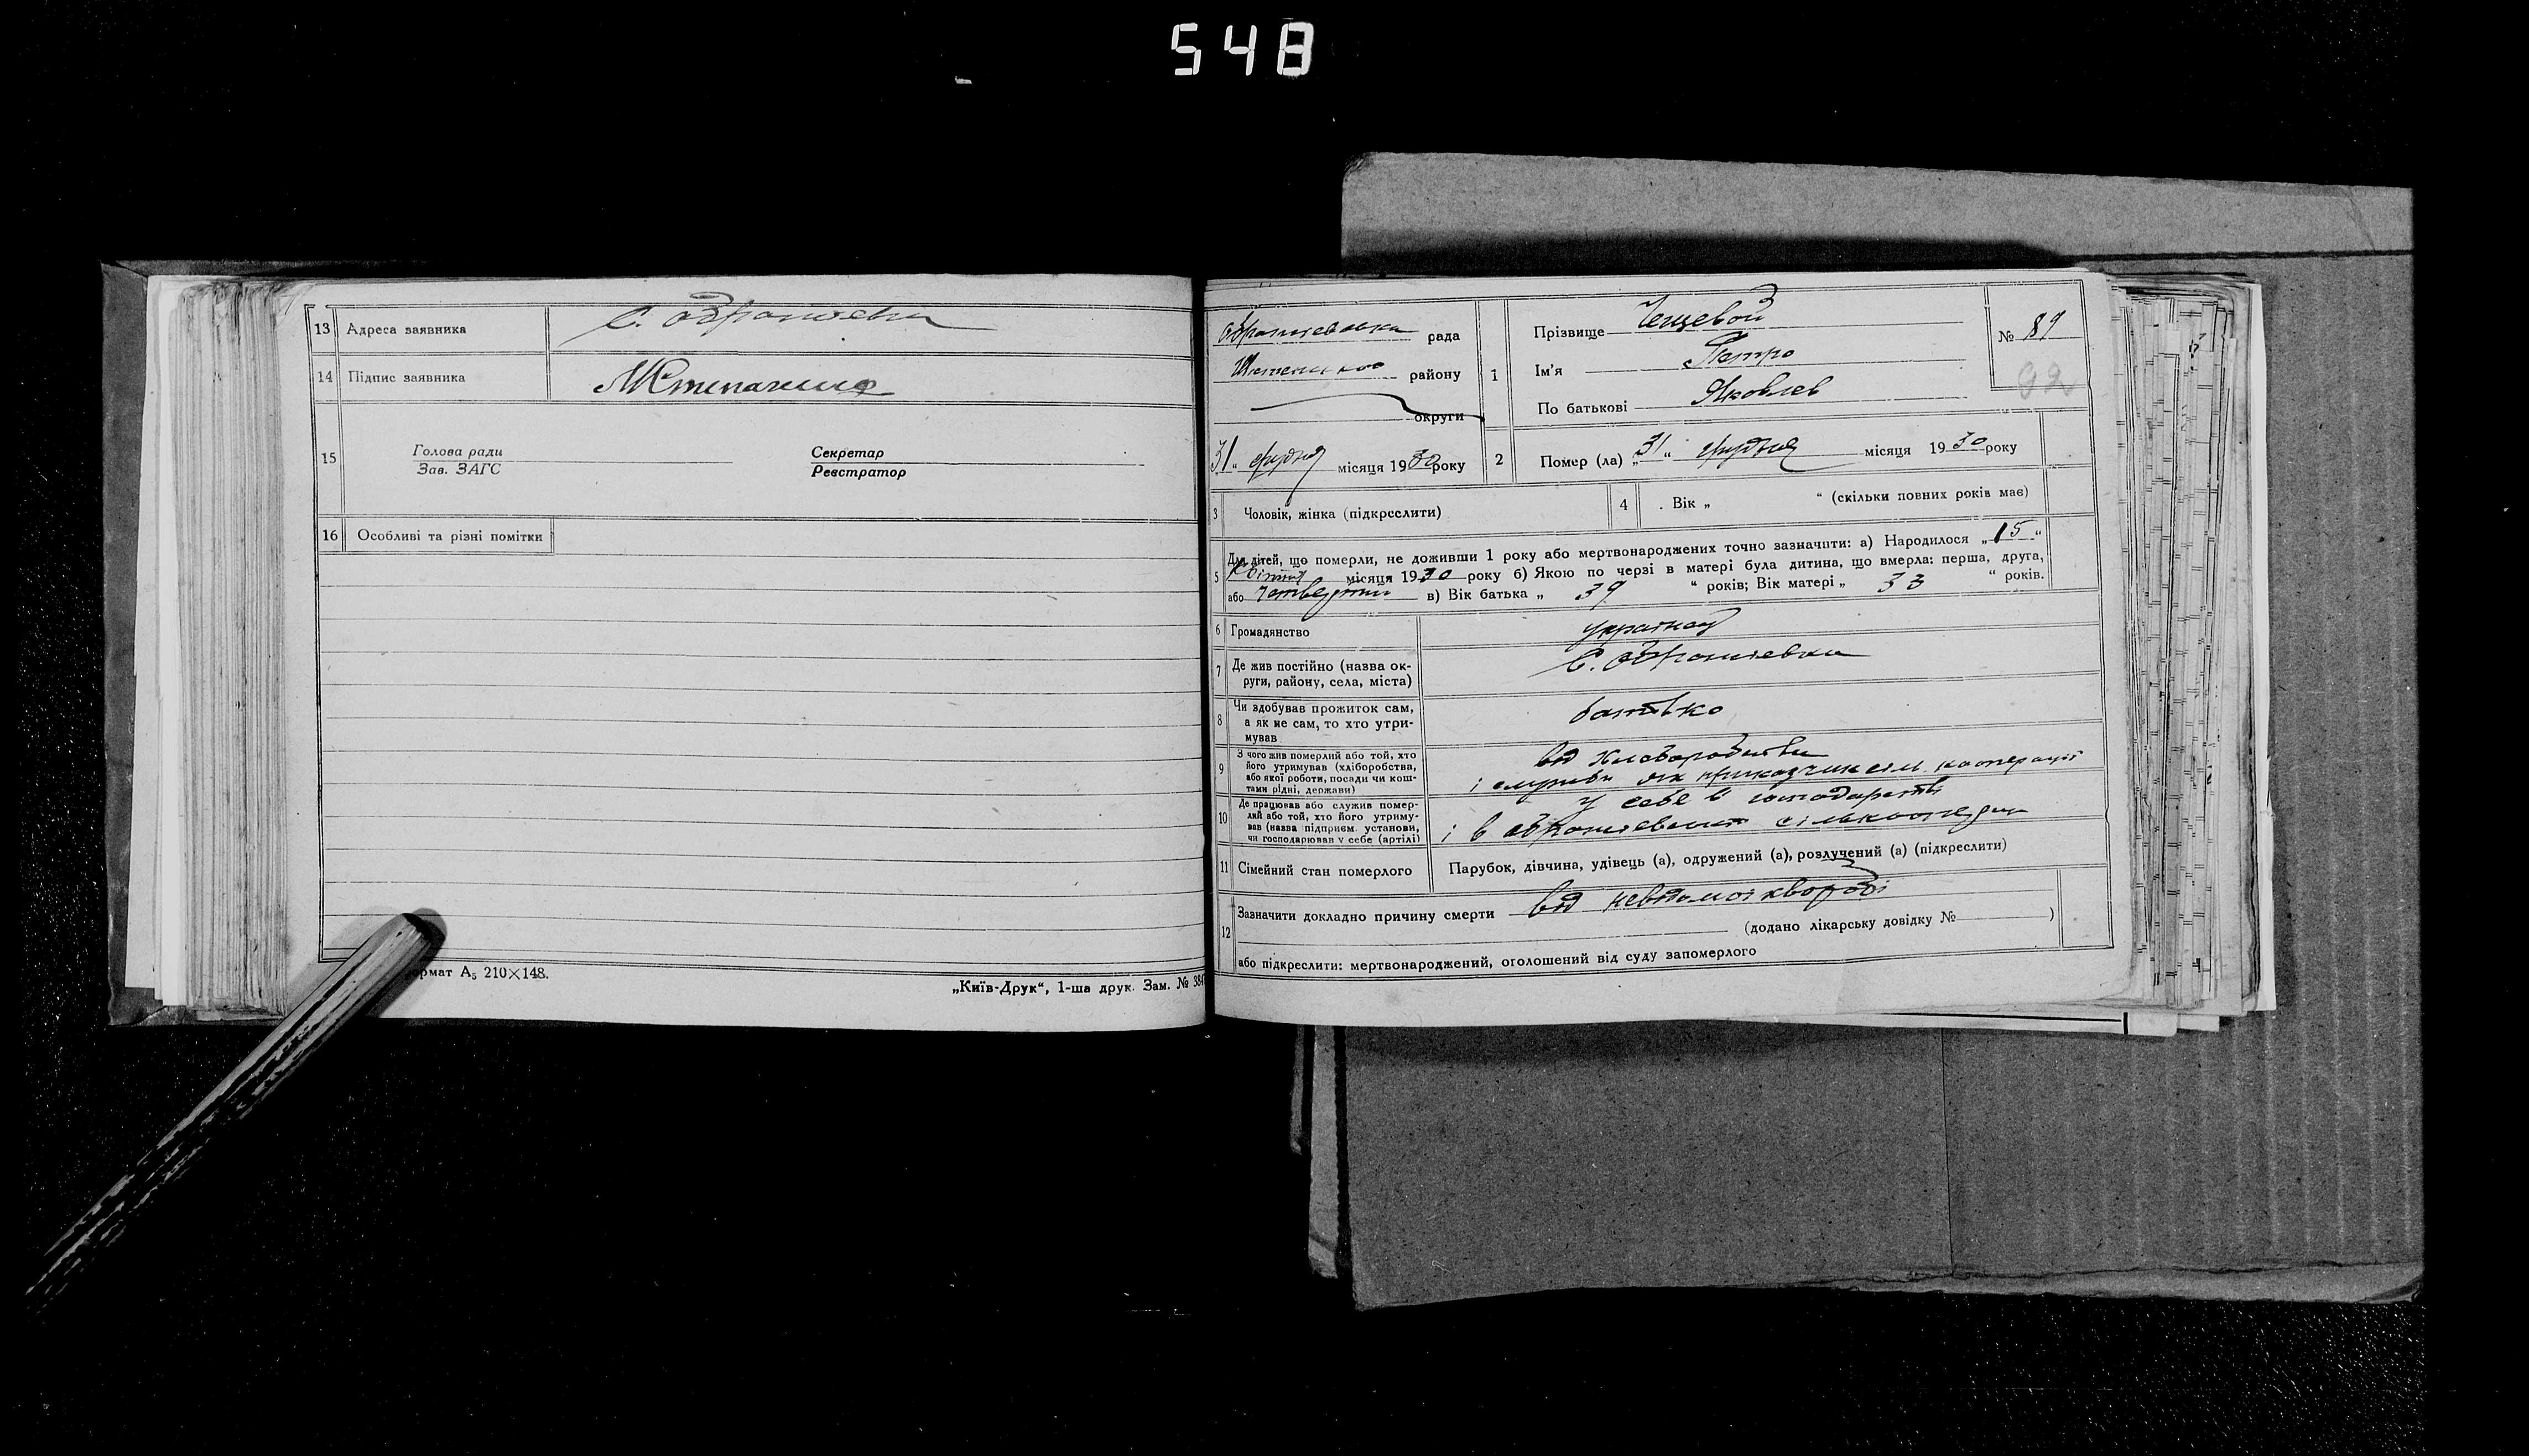 548
13 Адреса заявника
14 Підпис заявника
15 Голова ради Секретар
Зав. ЗАГС Реєстратор
16 Особливі та різні помітки
формат А5 210×148.
„Київ-Друк“, 1-ша друк. Зам. №
рада
району
округи
31 “ грудня місяця 1930 року
1 Прізвище
Ім'я Петро
По батькові Яковлев
№ 89
92
2 Помер (ла) „31“ грудня місяця 1930 року
3 Чоловік, жінка (підкреслити)
4 . Вік „ “ (скільки повних років має)
5 Для дітей, що померли, не доживши 1 року або мертвонароджених точно зазначити: а) Народилося „15“
Квітня місяця 1930 року б) Якою по черзі в матері була дитина, що вмерла: перша, друга,
або четверта в) Вік батька „ 39 “ років; Вік матері „ 33 “ років.
6 Громадянство
7 Де жив постійно (назва ок-
руги, району, села, міста)
8 Чи здобував прожиток сам,
а як не сам, то хто утри-
мував
батько
9 З чого жив померлий або той, хто
його утримував (хліборобства,
або якої роботи, посади чи кош-
тами рідні, держави)
від
і як кооперації
10 Де працював або служив помер-
лий або той, хто його утриму-
вав (назва підприєм. установи,
чи господарював у себе (артілі)
у себе в господарстві
і в
11 Сімейний стан померлого Парубок, дівчина, удівець (а), одружений (а), розлучений (а) (підкреслити)
12 Зазначити докладно причину смерти від невідомої хвороби
(додано лікарську довідку № )
або підкреслити: мертвонароджений, оголошений від суду запомерлого